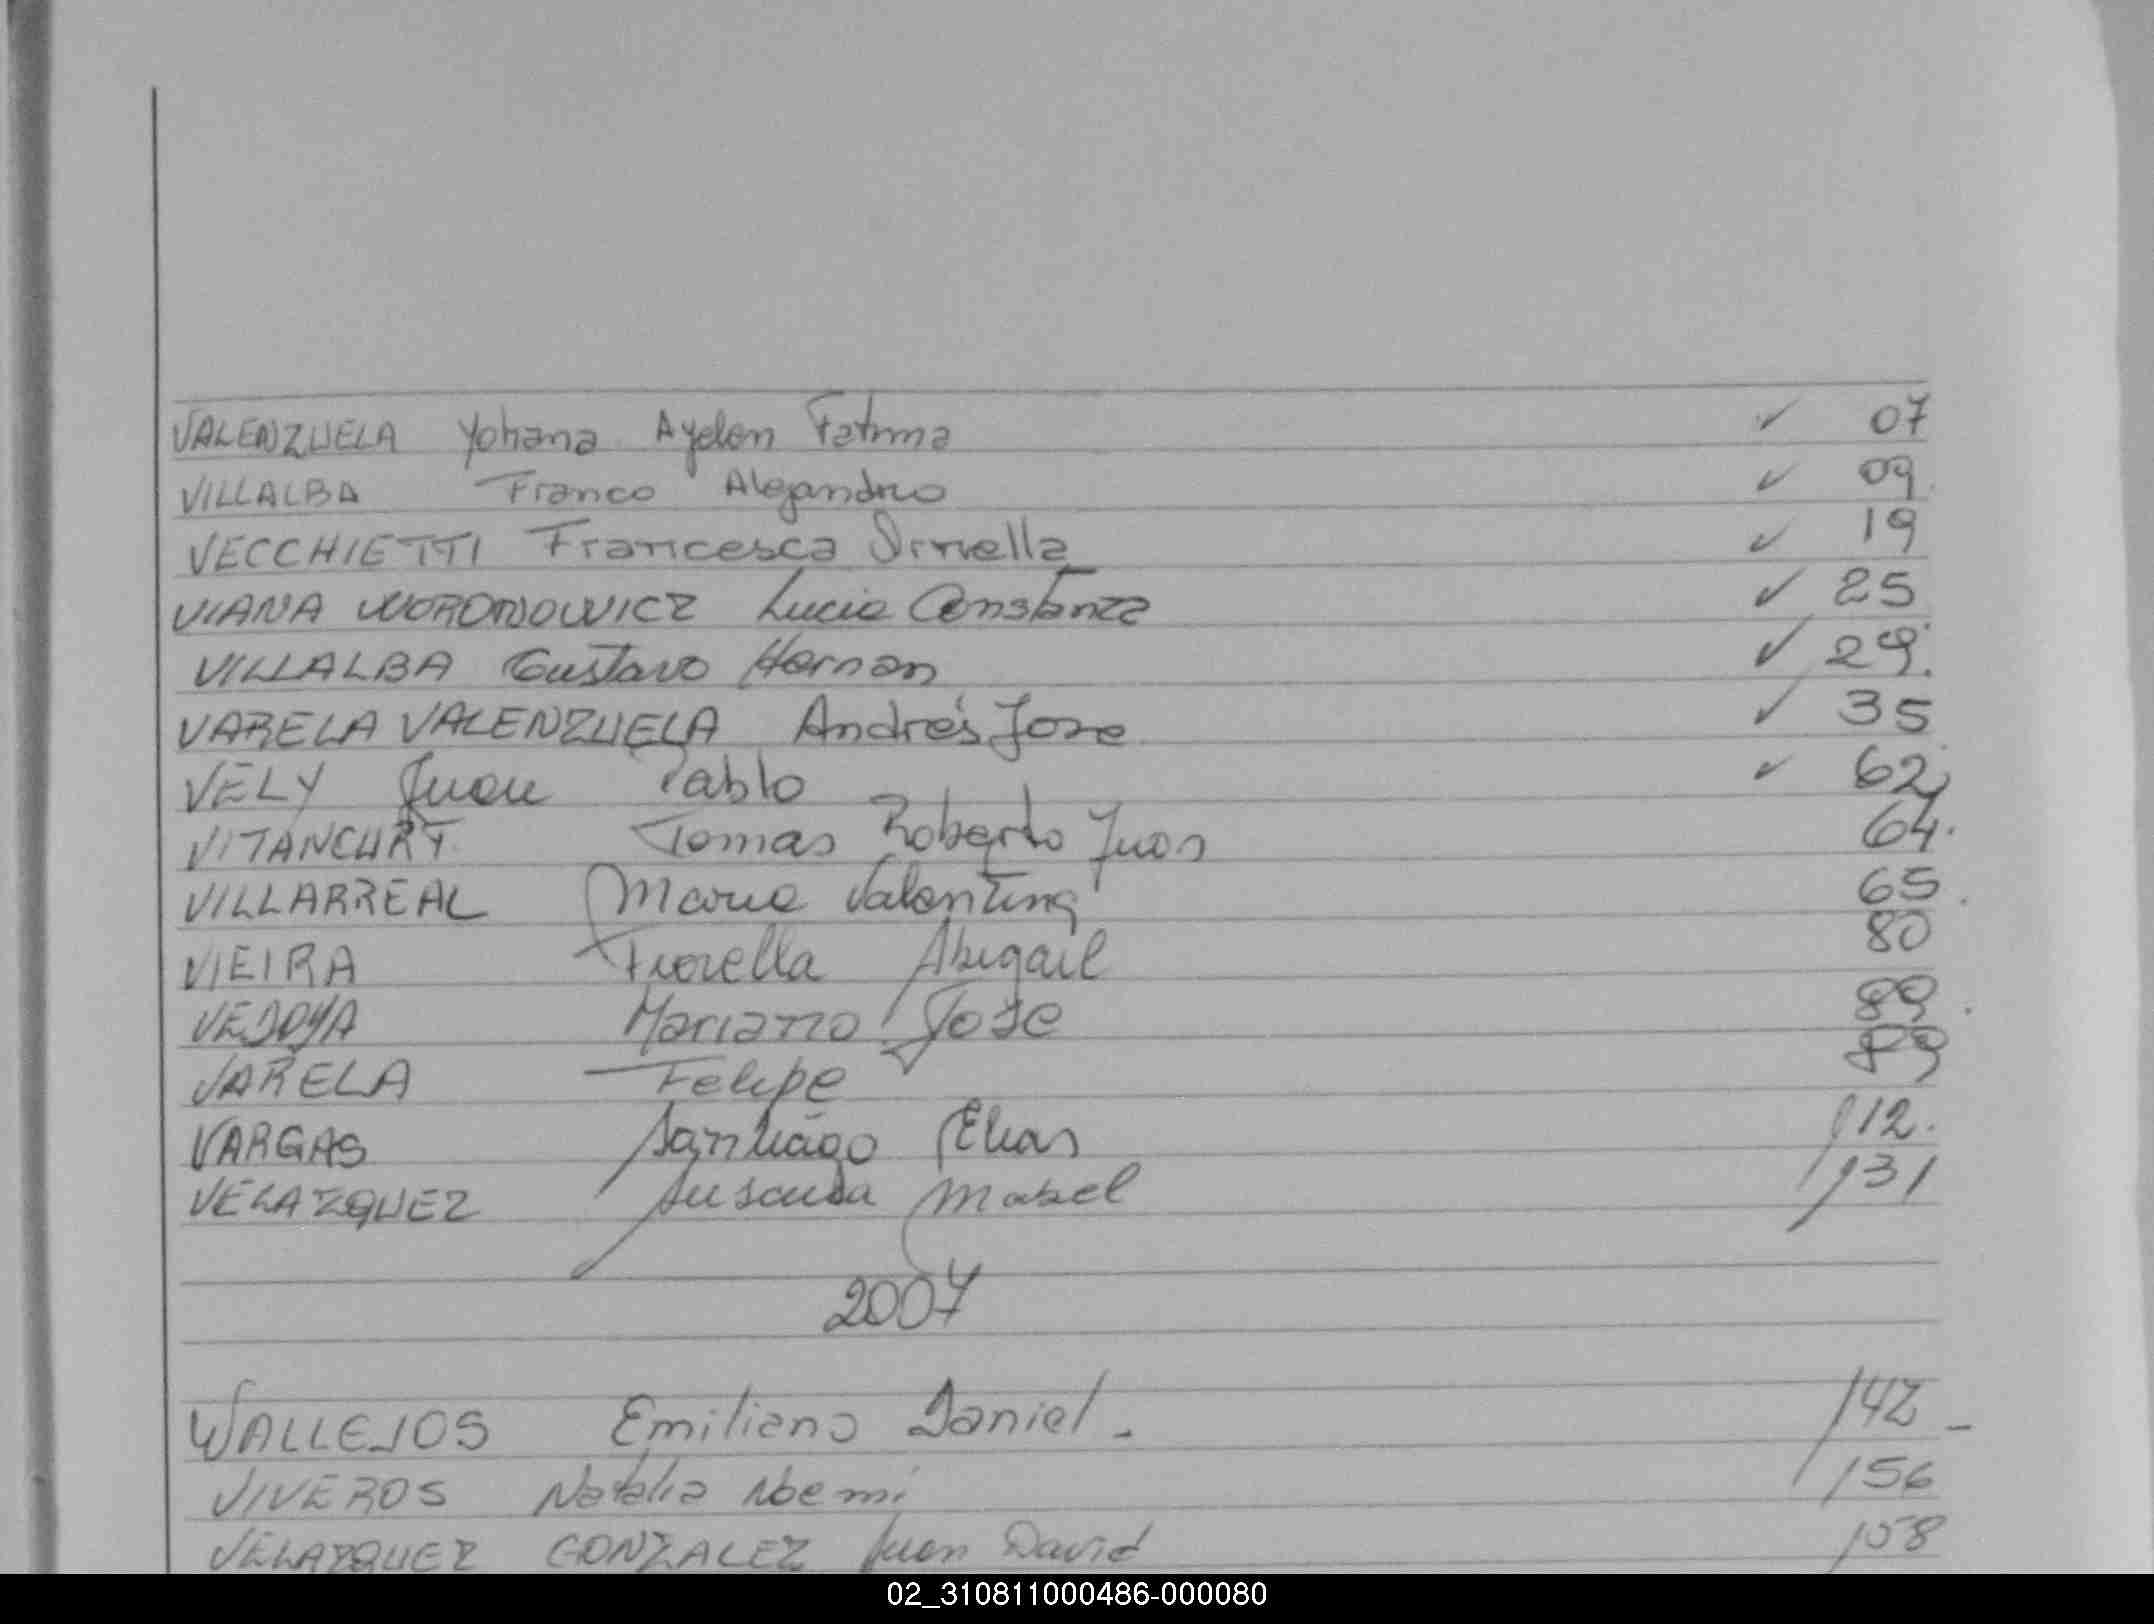 VALENZUELA Yohana Ayelen Fatima ✓ 07
VILLALBA Franco Alejandro ✓ 09
VECCHIETTI Francesca Ornella ✓ 19
VIANA WORONOWICZ Lucia Constanza ✓ 25
VILLALBA Gustavo Hernan ✓ 29.
VARELA VALENZUELA Andrés Jose ✓ 35
VELY Juan Pablo ✓ 62
VITANCURT Tomas Roberto Juan 64.
VILLARREAL Maria Valentina 65.
VIEIRA Fiorella Abigail 80
VEDOYA Mariano Jose 89.
VARELA Felipe 89
VARGAS Santiago Elias 112.
VELAZQUEZ Mabel 131
2007
WALLEJOS Emiliano Daniel. 142 -
VIVEROS Natalia Noemi 156
VELAZQUEZ GONZALEZ Juan David 158
02_310811000486-000080